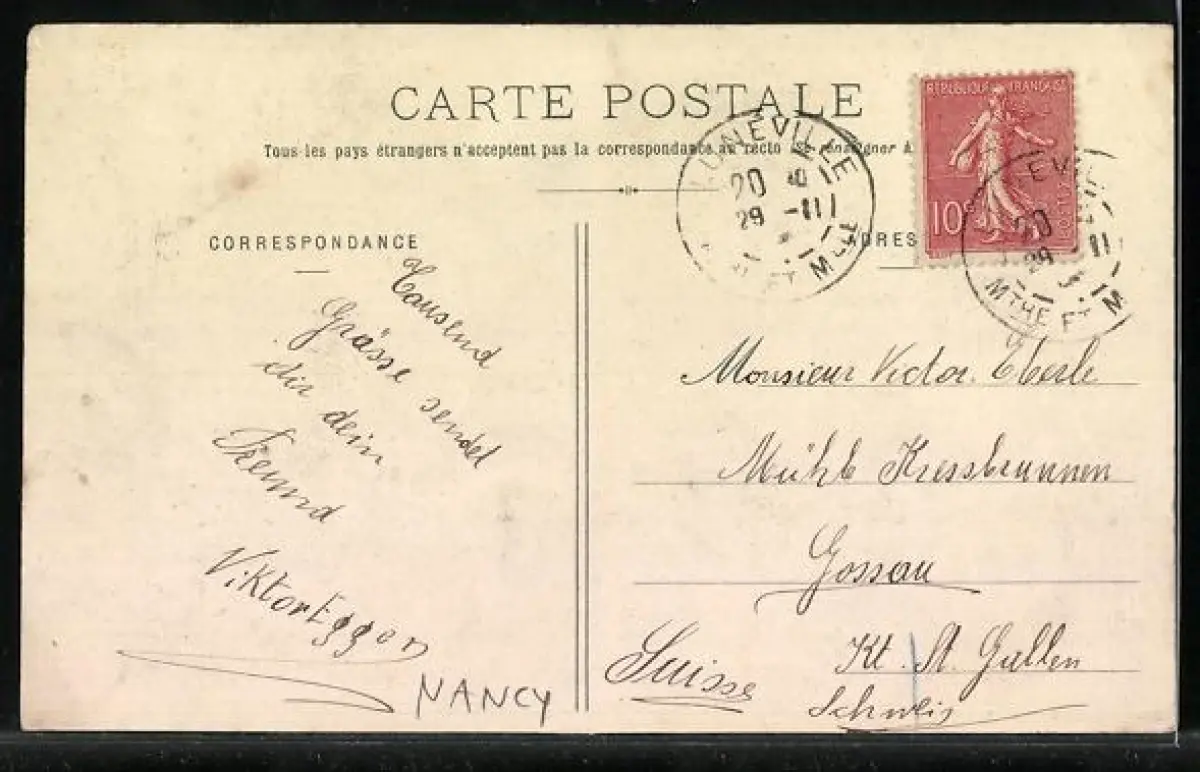 CARTE POSTALE
Tous les pays étrangers n'acceptent pas la correspondance au recto (se renseigner à
CORRESPONDANCE
ADRES
RÉPUBLIQUE FRANÇAISE
POSTES
10c
LUNÉVILLE
20
29 -11
ET M
LLE
20
29 -11
MTHE ET M
Tausend
Grüsse sendet
dir dein
Freund
Viktor Eggen
NANCY
Monsieur Victor Eberle
Mühle Kressbrunnen
Gossau
Suisse
Kt. St. Gallen
Schweiz